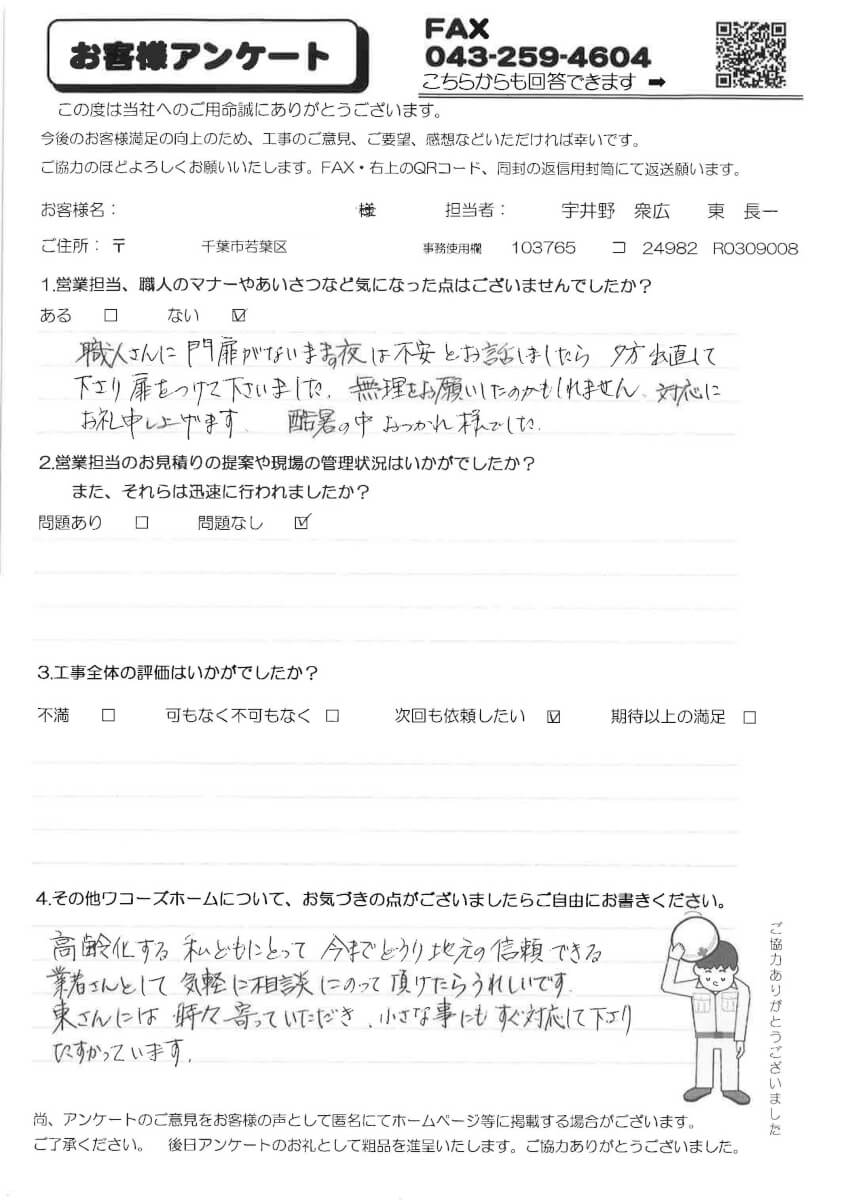 お客様アンケート
FAX
043-259-4604
こちらからも回答できます ➡
この度は当社へのご用命誠にありがとうございます。
今後のお客様満足の向上のため、工事のご意見、ご要望、感想などいただければ幸いです。
ご協力のほどよろしくお願いいたします。FAX・右上のQRコード、同封の返信用封筒にて返送願います。
お客様名： 様 担当者： 宇井野 衆広 東 長一
ご住所：〒 千葉市若葉区 事務使用欄 103765 コ 24982 R0309008
1.営業担当、職人のマナーやあいさつなど気になった点はございませんでしたか？
ある □ ない ☑
職人さんに門扉がないままの夜は不安とお話しましたら 夕方出直して
下さり扉をつけて下さいました。無理をお願いしたのかもしれません、対応に
お礼申し上げます。 酷暑の中おつかれ様でした。
2.営業担当のお見積りの提案や現場の管理状況はいかがでしたか？
また、それらは迅速に行われましたか？
問題あり □ 問題なし ☑
3.工事全体の評価はいかがでしたか？
不満 □ 可もなく不可もなく □ 次回も依頼したい ☑ 期待以上の満足 □
4.その他ワコーズホームについて、お気づきの点がございましたらご自由にお書きください。
高齢化する私どもにとって今までどうり地元の信頼できる
業者さんとして気軽に相談にのって頂けたらうれしいです。
東さんには時々寄っていただき、小さな事にもすぐ対応して下さり
たすかっています。
ご協力ありがとうございました
尚、アンケートのご意見をお客様の声として匿名にてホームページ等に掲載する場合がございます。
ご了承ください。 後日アンケートのお礼として粗品を進呈いたします。ご協力ありがとうございました。